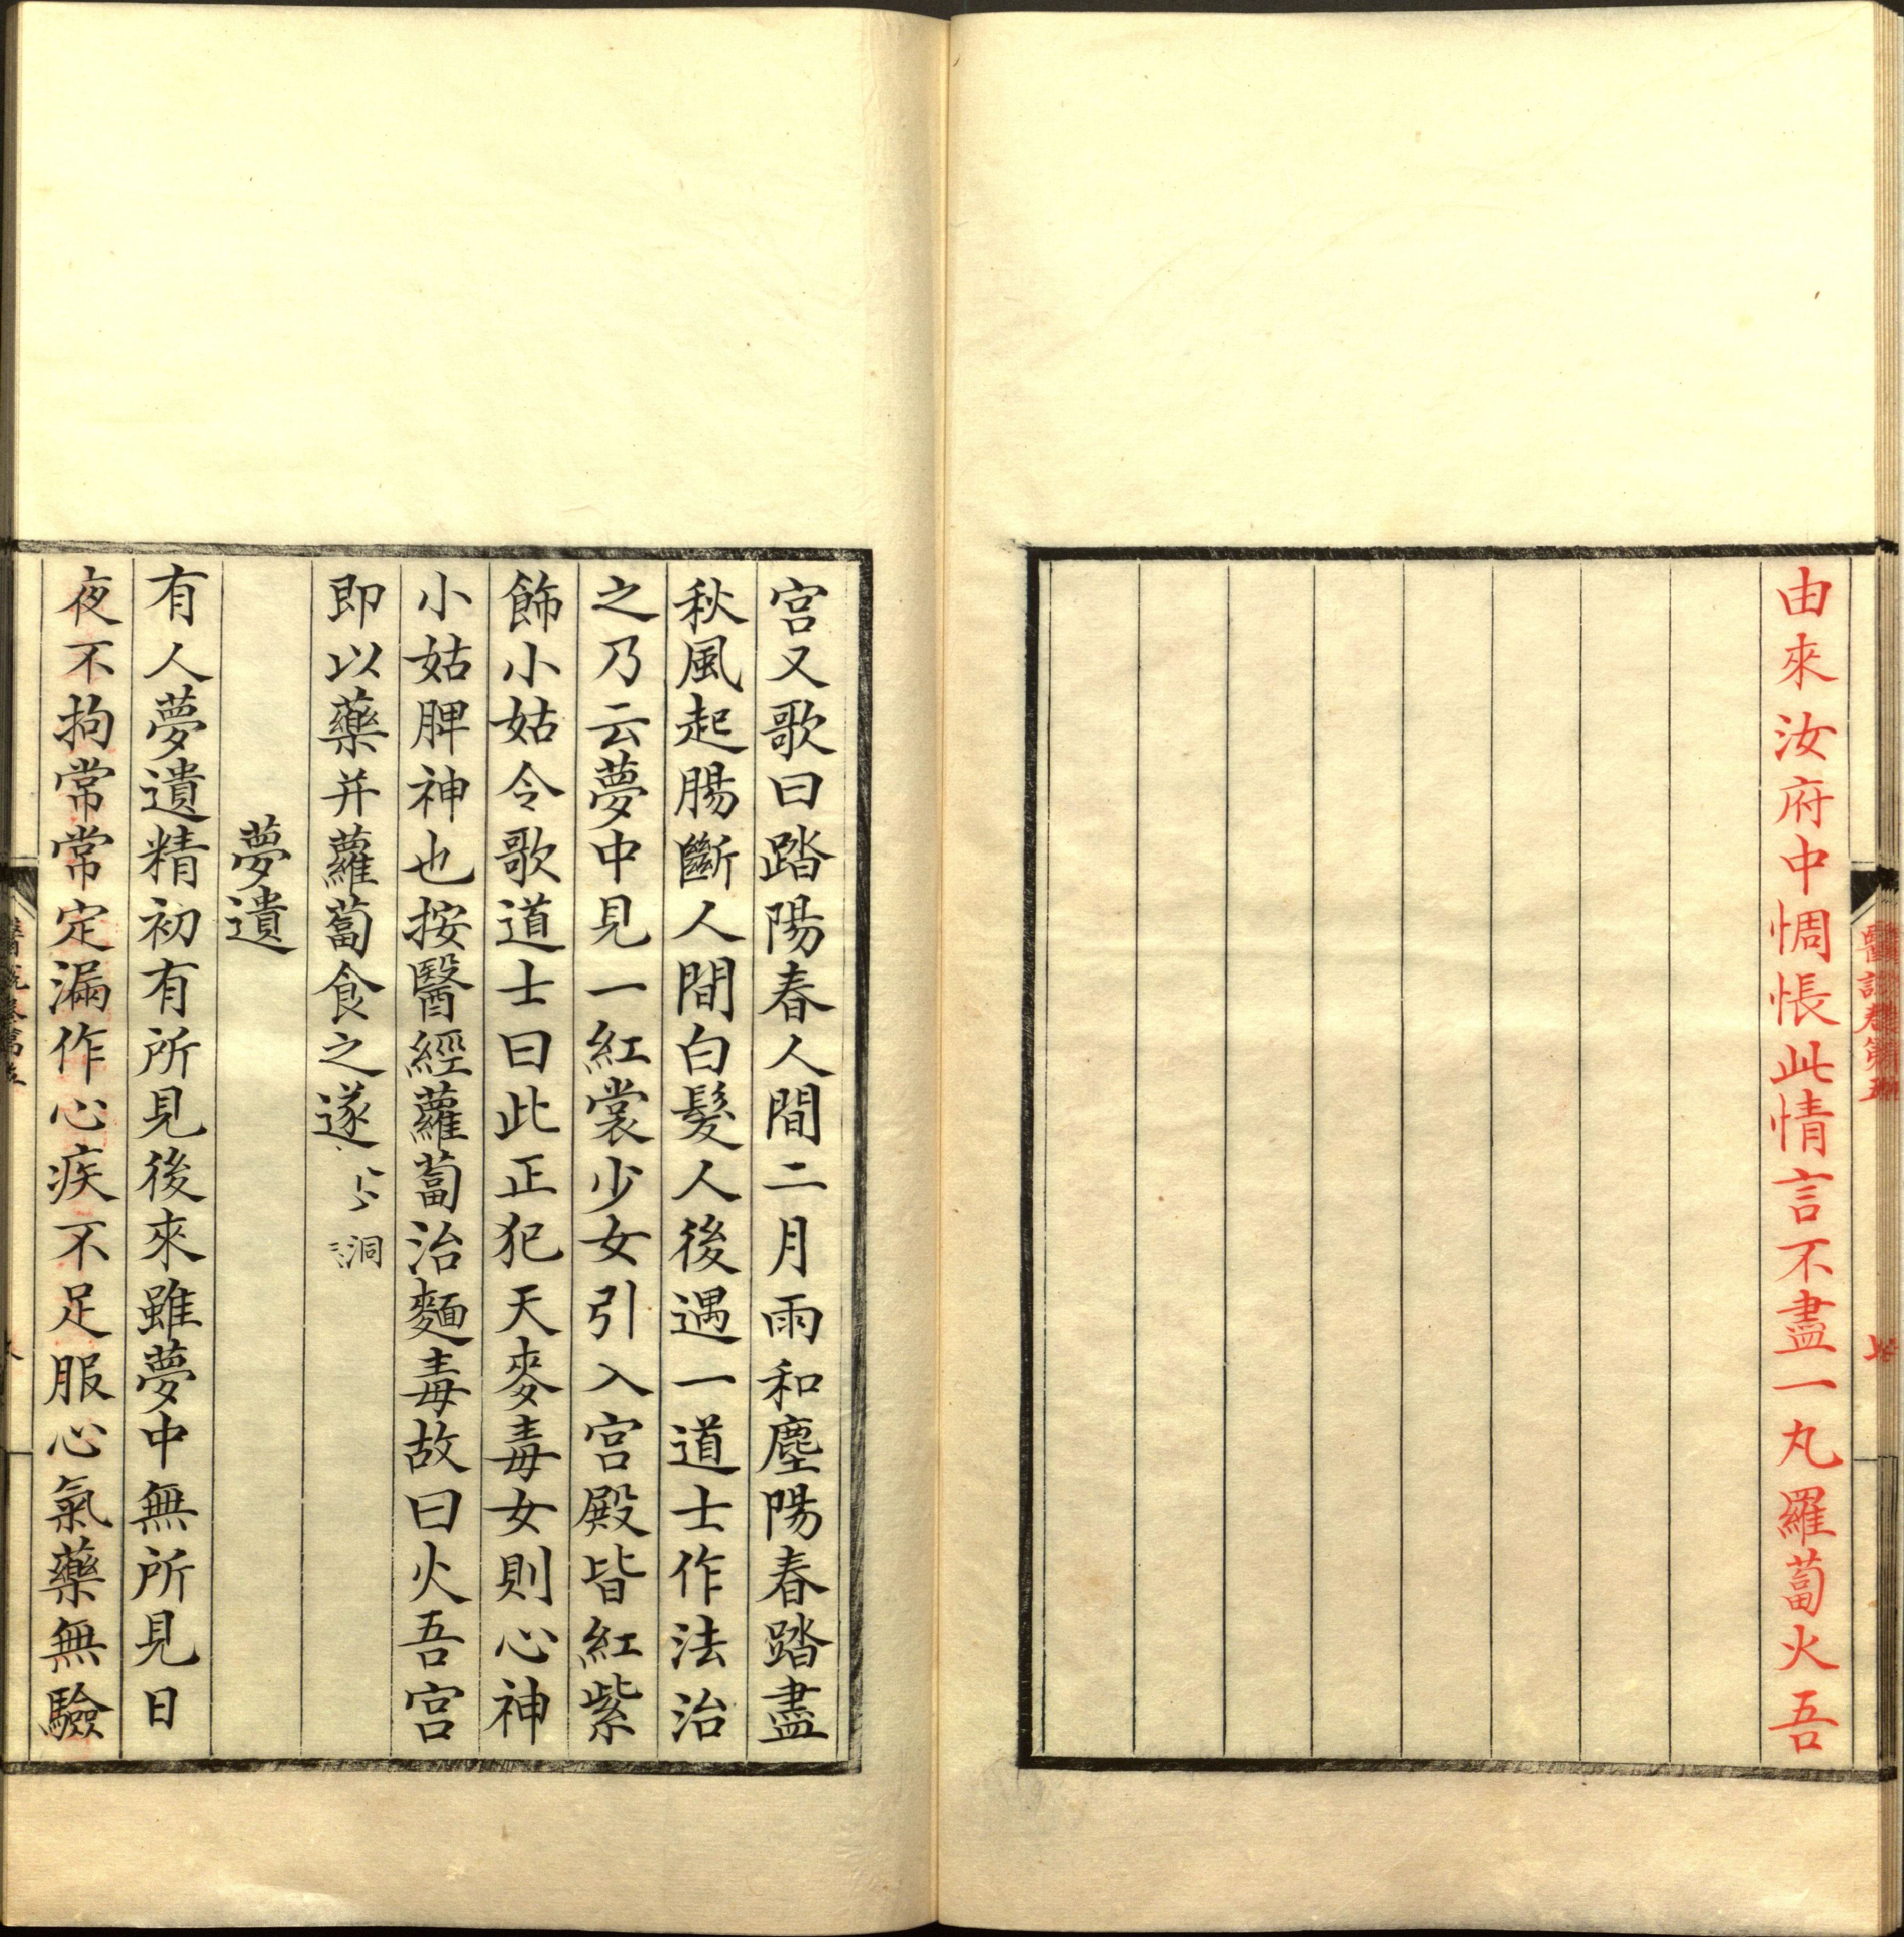 由來汝府中惆悵此情言不盡一丸羅蔔火吾
宮又歌曰踏陽春人間二月雨和塵陽春踏盡
秋風起腸斷人間白髮人後遇一道士作法治
之乃云夢中見一紅裳少女引入宮殿皆紅紫
飾小姑令歌道士曰此正犯天麥毒女則心神
小姑脾神也按醫經蘿蔔治麵毒故曰火吾宮
即以藥并蘿蔔食之遂
洞
夢遺
有人夢遺精初有所見後來雖夢中無所見日
夜不拘常常定漏作心疾不足服心氣藥無驗